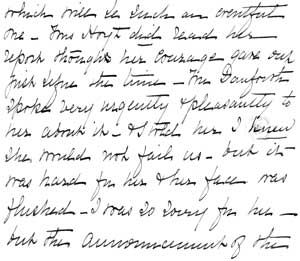 which will be such an eventful
one - Mrs Hoyt did read her
report though her courage gave out
just before the time - Mrs Danforth
spoke very urgently & pleasantly to
her about it - & I told her I knew
she would not fail us - but it
was hard for her & her face was
flushed - I was so sorry for her -
but the announcement of the